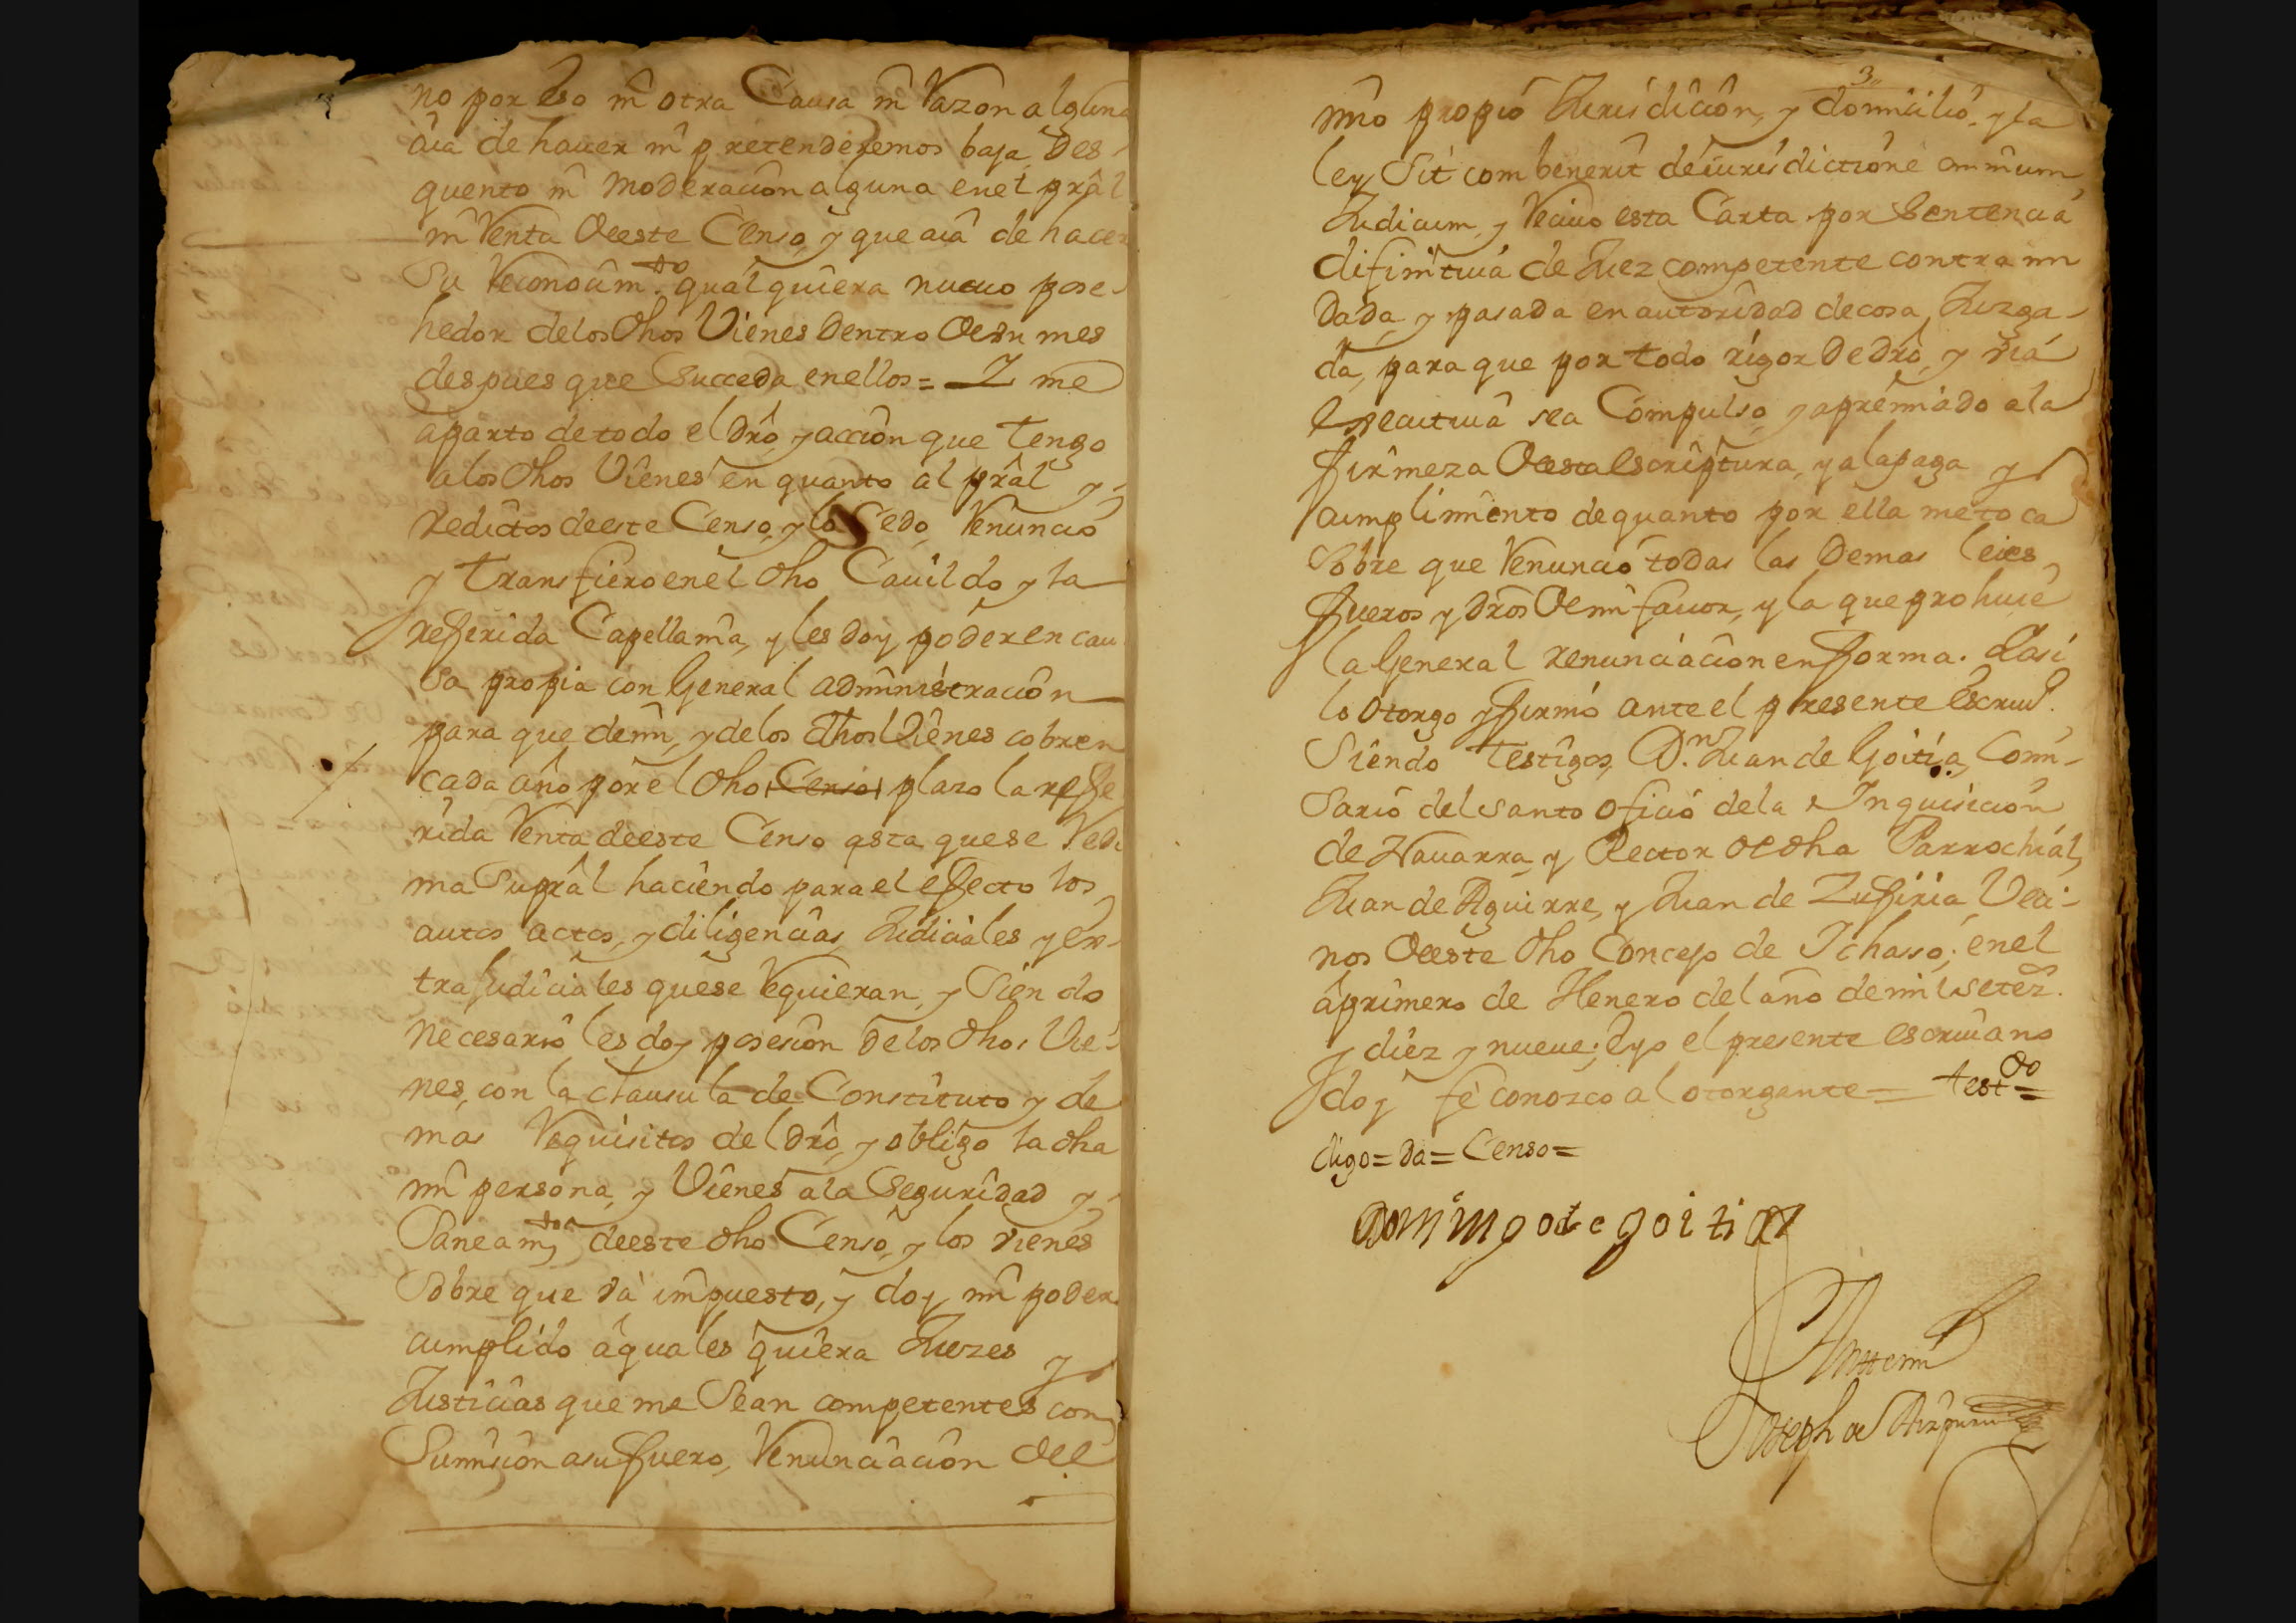 no por eso ni otra Causa ni Razon alguna
aia de hauer ni pretenderemos baja, des-
quento ni moderacion alguna en el prâl
ni Renta de este Censo, y que aiâ de hacer
Su Reconocim.to qualquiera nueuo pose-
hedor de los dhos Vienes dentro de un mes
despues que Succeda en ellos = I me
aparto de todo el drô, y accion que tengo
a los dhos Vienes en quanto al prâl y
redictos de este Censo, y lo Cedo, Renuncio
y transfiero en el dho Cauildo y la
referida Capellania, y les doy poder en cau
sa propia con General administracion
para que de mi, y de los dhos Vienes cobren
cada año por el dho Censo plazo la refe
rida Renta de este Censo asta que se Redi
ma Su prâl haciendo para el efecto los
autos actos, y diligencias, Judiciales y ex-
trajudiciales que se Requieran, y Siendo
necesario les doy posesion de los dhos Vie-
nes, con la clausula de Constituto y de
mas Requisitos del drô, y obligo la dha
mi persona, y Vienes a la Seguridad y
Saneam.to de este dho Censo, y los vienes
Sobre que va impuesto, y doy mi poder
cumplido a quales quiera Juezes y
Justicias que me Sean competentes con
Sumision a su fuero, Renunciacion del
3
mio propio Jurisdicion, y domicilio, y la
ley Sit combenerit de iurisdictione omnium
Judicum, y Reciuo esta Carta por Sentencia
difinitiua de Juez competente contra mi
dada, y pasada en autoridad de cosa Juzga-
da, para que por todo rigor de drô, y via
executiua sea Compulso, y apremiado a la
firmeza de esta escriptura, y a la paga y
cumplimiento de quanto por ella me toca
Sobre que Renuncio todas las demas leies,
fueros y drôs de mi fauor, y la que prohiue
la General renunciacion en forma. I asi
lo otorgo y firmó ante el presente Escriu.o
Siendo testigos, D.n Juan de Goitia, Comi-
sario del Santo oficio de la Inquisicion
de Nauarra, y Rector de dha Parrochial,
Juan de Aguirre, y Juan de Zufiria Veci-
nos de este dho Concejo de Ichaso; en el
a primero de Henero del año de mil setez.
y diez y nueue; I yo el presente escriuano
doy fe conozco al otorgante = test.do =
digo = da = Censo =
Domingo de goitia
Ante mi
Joseph de